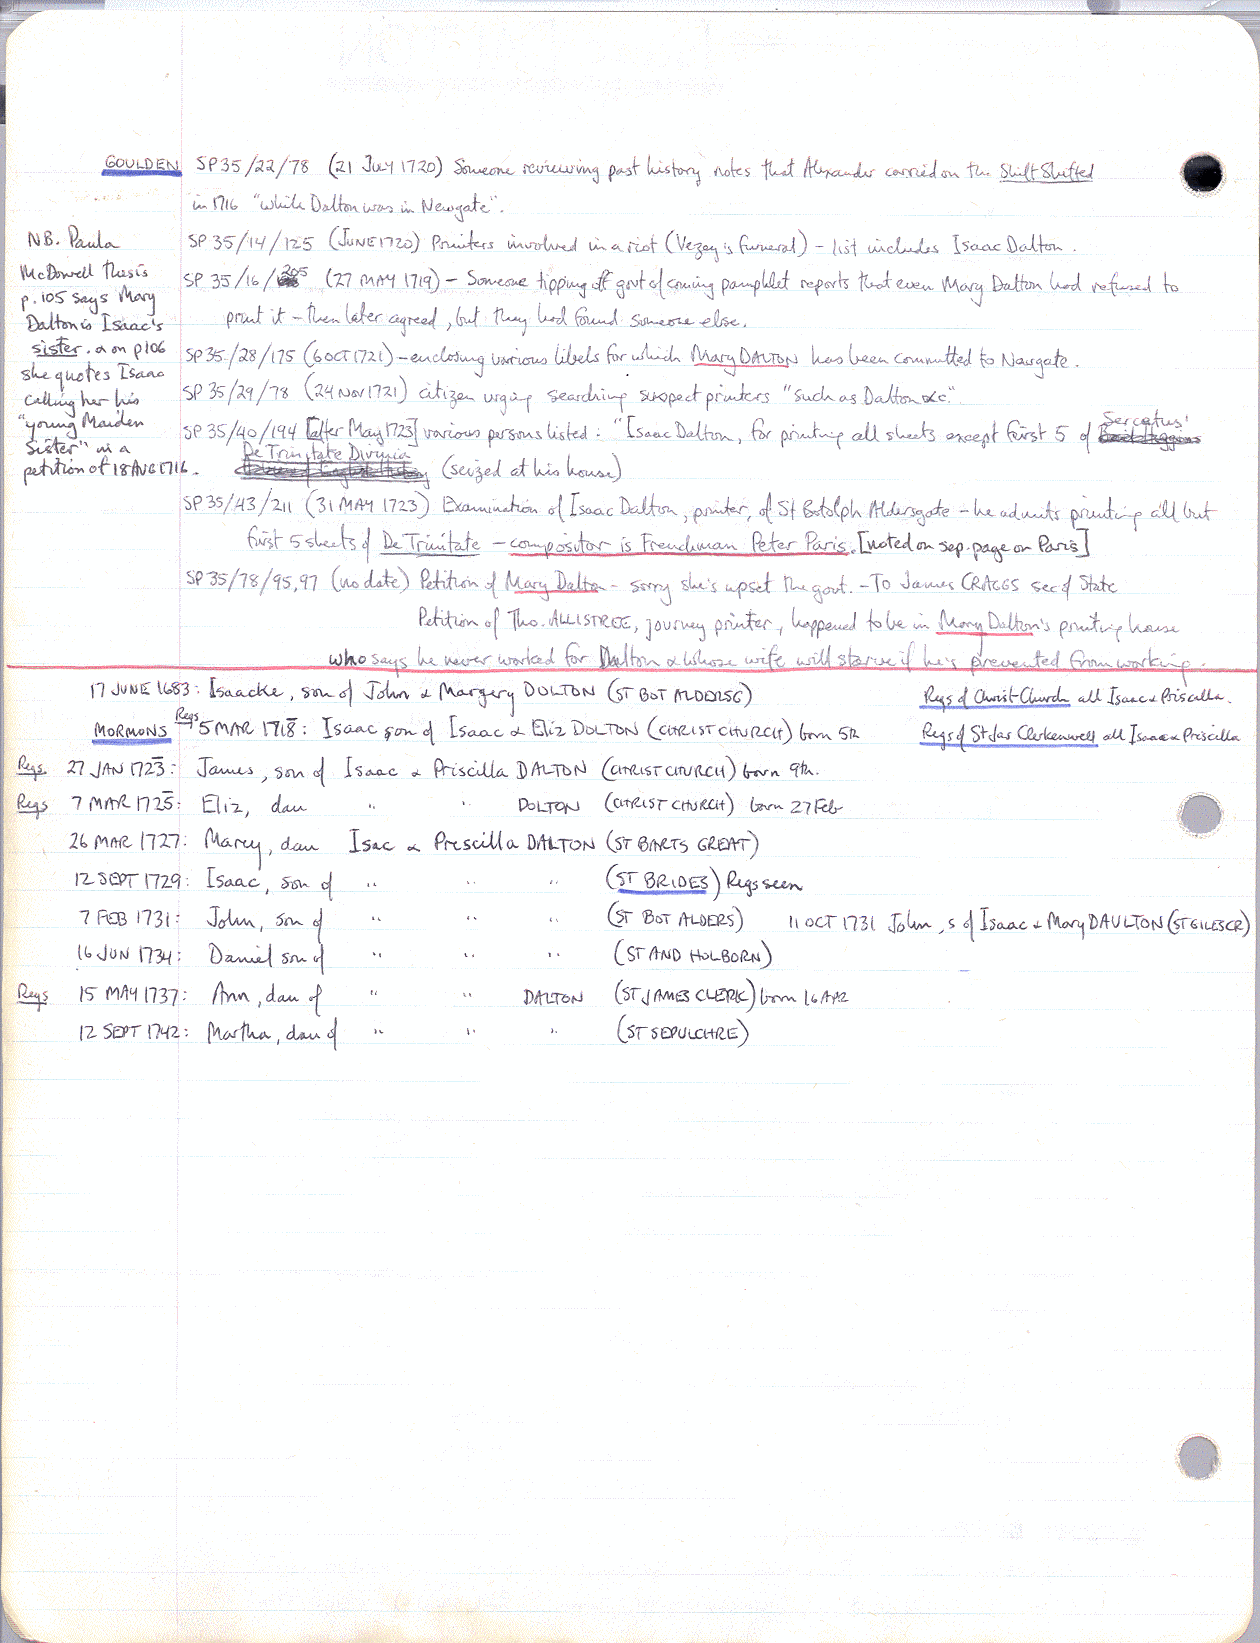 GOULDEN SP35/22/78 (21 July 1720) Someone reviewing past history notes that Alexander carried on the Shift Shifted
in 1716 "while Dalton was in Newgate".
SP 35/14/125 (JUNE 1720) Printers involved in a riot (Vezey's funeral) – list includes Isaac Dalton.
SP 35/16/205 (27 MAY 1719) – Someone tipping off govt of coming pamphlet reports that even Mary Dalton had refused to
print it – then later agreed, but they had found someone else.
SP35/28/175 (6 OCT 1721) – enclosing various libels for which Mary DALTON has been committed to Newgate.
SP 35/29/78 (24 Nov 1721) citizen urging searching suspect printers "such as Dalton &c."
SP 35/40/194 [after May 1723] various persons listed: "Isaac Dalton, for printing all sheets except first 5 of Servetus'
De Trinitate Divinia (seized at his house)
SP 35/43/211 (31 MAY 1723) Examination of Isaac Dalton, printer, of St Botolph Aldersgate – he admits printing all but
first 5 sheets of De Trinitate – compositor is Frenchman Peter Paris. [noted on sep. page on Paris]
SP 35/78/95,97 (no date) Petition of Mary Dalton – sorry she's upset the govt. – To James CRAGGS sec of State
Petition of Tho. ALLISTREE, journey printer, happened to be in Mary Dalton's printing house
who says he never worked for Dalton & whose wife will starve if he's prevented from working.
NB. Paula
McDowell Thesis
p.105 says Mary
Dalton is Isaac's
sister. & on p106
she quotes Isaac
calling her his
"young Maiden
Sister" in a
petition of 18 AUG 1716.
17 JUNE 1683: Isaacke, son of John & Margery DOLTON (ST BOT ALDERSG) Regs of Christ Church all Isaac & Priscilla.
MORMONS Regs 5 MAR 1718: Isaac son of Isaac & Eliz DOLTON (CHRIST CHURCH) born 5th Regs of St Jas Clerkenwell all Isaac & Priscilla
Regs. 27 JAN 1723: James, son of Isaac & Priscilla DALTON (CHRIST CHURCH) born 9th.
Regs 7 MAR 1725: Eliz, dau " " DOLTON (CHRIST CHURCH) born 27 Feb
26 MAR 1727: Marcy, dau Isac & Prescilla DALTON (ST BARTS GREAT)
12 SEPT 1729: Isaac, son of " " " (ST BRIDES) Regs seen
7 FEB 1731: John, son of " " " (ST BOT ALDERS) 11 OCT 1731 John, s of Isaac & Mary DAULTON (ST GILES CR)
16 JUN 1734: Daniel son of " " " (ST AND HOLBORN)
Regs 15 MAY 1737: Ann, dau of " " DALTON (ST JAMES CLERK) born 16 APR
12 SEPT 1742: Martha, dau of " " " (ST SEPULCHRE)